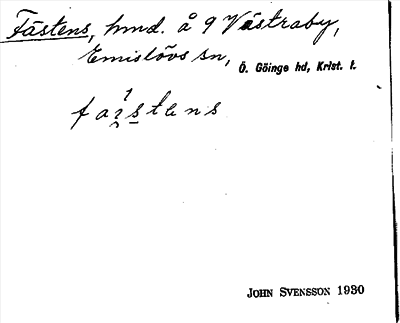 Fästens, hmd. å 9 Västraby,
Emislövs sn, Ö. Göinge hd, Krist. l.
JOHN SVENSSON 1930